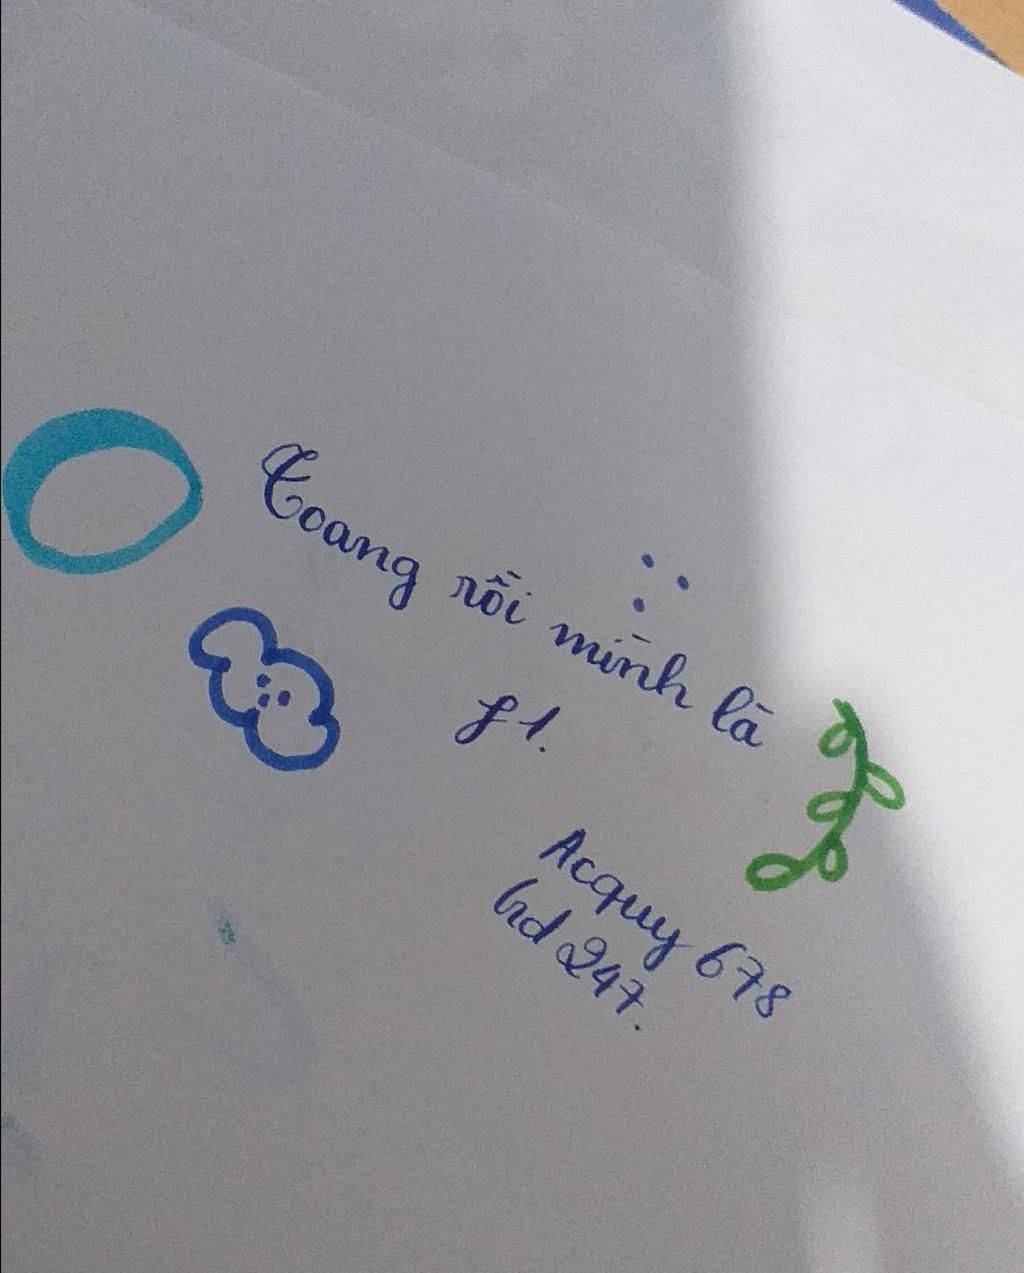 Toang rồi mình là
f1.
Acquy 678
bd 247.